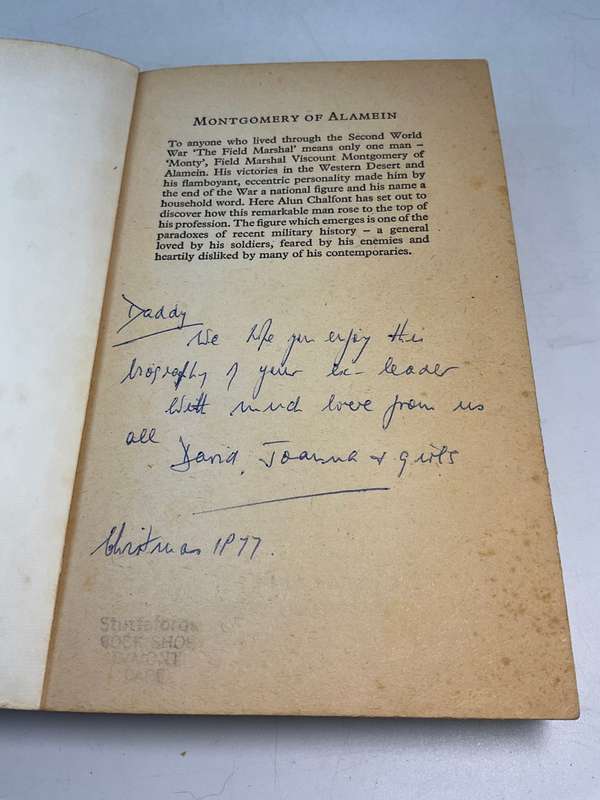 MONTGOMERY OF ALAMEIN
To anyone who lived through the Second World
War 'The Field Marshal' means only one man –
'Monty', Field Marshal Viscount Montgomery of
Alamein. His victories in the Western Desert and
his flamboyant, eccentric personality made him by
the end of the War a national figure and his name a
household word. Here Alun Chalfont has set out to
discover how this remarkable man rose to the top of
his profession. The figure which emerges is one of the
paradoxes of recent military history – a general
loved by his soldiers, feared by his enemies and
heartily disliked by many of his contemporaries.
Daddy
We hope you enjoy this
biography of your ex-leader
With much love from us
all
David, Joanna + girls
Christmas 1977.
BOOK SHOP